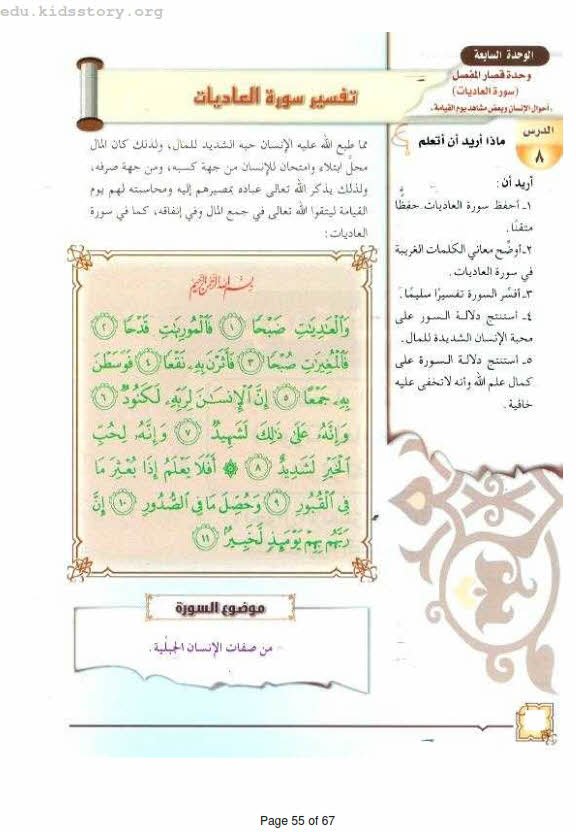 edu.kidsstory.org
الوحدة السابعة
وحدة قصار المفصل
(سورة العاديات)
.أحوال الإنسان وبعض مشاهد يوم القيامة.
الدرس
٨
ماذا أريد أن أتعلم
أريد أن :
١ـ أحفظ سورة العاديات حفظًا
متقنًا.
٢ـ أوضِّح معاني الكلمات الغريبة
في سورة العاديات.
٣ـ أفسِّر السورة تفسيرًا سليمًا.
٤ـ أستنتج دلالة السور على
محبة الإنسان الشديدة للمال.
٥ـ أستنتج دلالة السورة على
كمال علم الله وأنه لاتخفى عليه
خافية.
تفسير سورة العاديات
مما طبع الله عليه الإنسان حبه الشديد للمال، ولذلك كان المال
محلَّ ابتلاء وامتحان للإنسان من جهة كسبه، ومن جهة صرفه،
ولذلك يذكر الله تعالى عباده بمصيرهم إليه ومحاسبته لهم يوم
القيامة ليتقوا الله تعالى في جمع المال وفي إنفاقه، كما في سورة
العاديات:
بِسْمِ اللَّهِ الرَّحْمَٰنِ الرَّحِيمِ
وَٱلْعَٰدِيَٰتِ ضَبْحًا ۝١ فَٱلْمُورِيَٰتِ قَدْحًا ۝٢
فَٱلْمُغِيرَٰتِ صُبْحًا ۝٣ فَأَثَرْنَ بِهِۦ نَقْعًا ۝٤ فَوَسَطْنَ
بِهِۦ جَمْعًا ۝٥ إِنَّ ٱلْإِنسَٰنَ لِرَبِّهِۦ لَكَنُودٌ ۝٦
وَإِنَّهُۥ عَلَىٰ ذَٰلِكَ لَشَهِيدٌ ۝٧ وَإِنَّهُۥ لِحُبِّ
ٱلْخَيْرِ لَشَدِيدٌ ۝٨ ۞ أَفَلَا يَعْلَمُ إِذَا بُعْثِرَ مَا
فِى ٱلْقُبُورِ ۝٩ وَحُصِّلَ مَا فِى ٱلصُّدُورِ ۝١٠ إِنَّ
رَبَّهُم بِهِمْ يَوْمَئِذٍ لَّخَبِيرٌۢ ۝١١
موضوع السورة
- من صفات الإنسان الجبلِّية.
Page 55 of 67